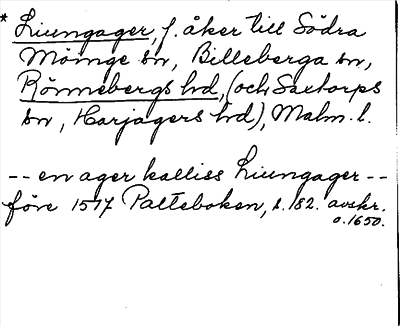 * Liungager, f. åker till Södra
Möinge sn, Billeberga sn,
Rönnebergs hd, (och Saxtorps
sn, Harjagers hd), Malm. l.
-- en ager kalliss Liungager --
före 1517 Palteboken, s. 182. avskr.
o. 1650.